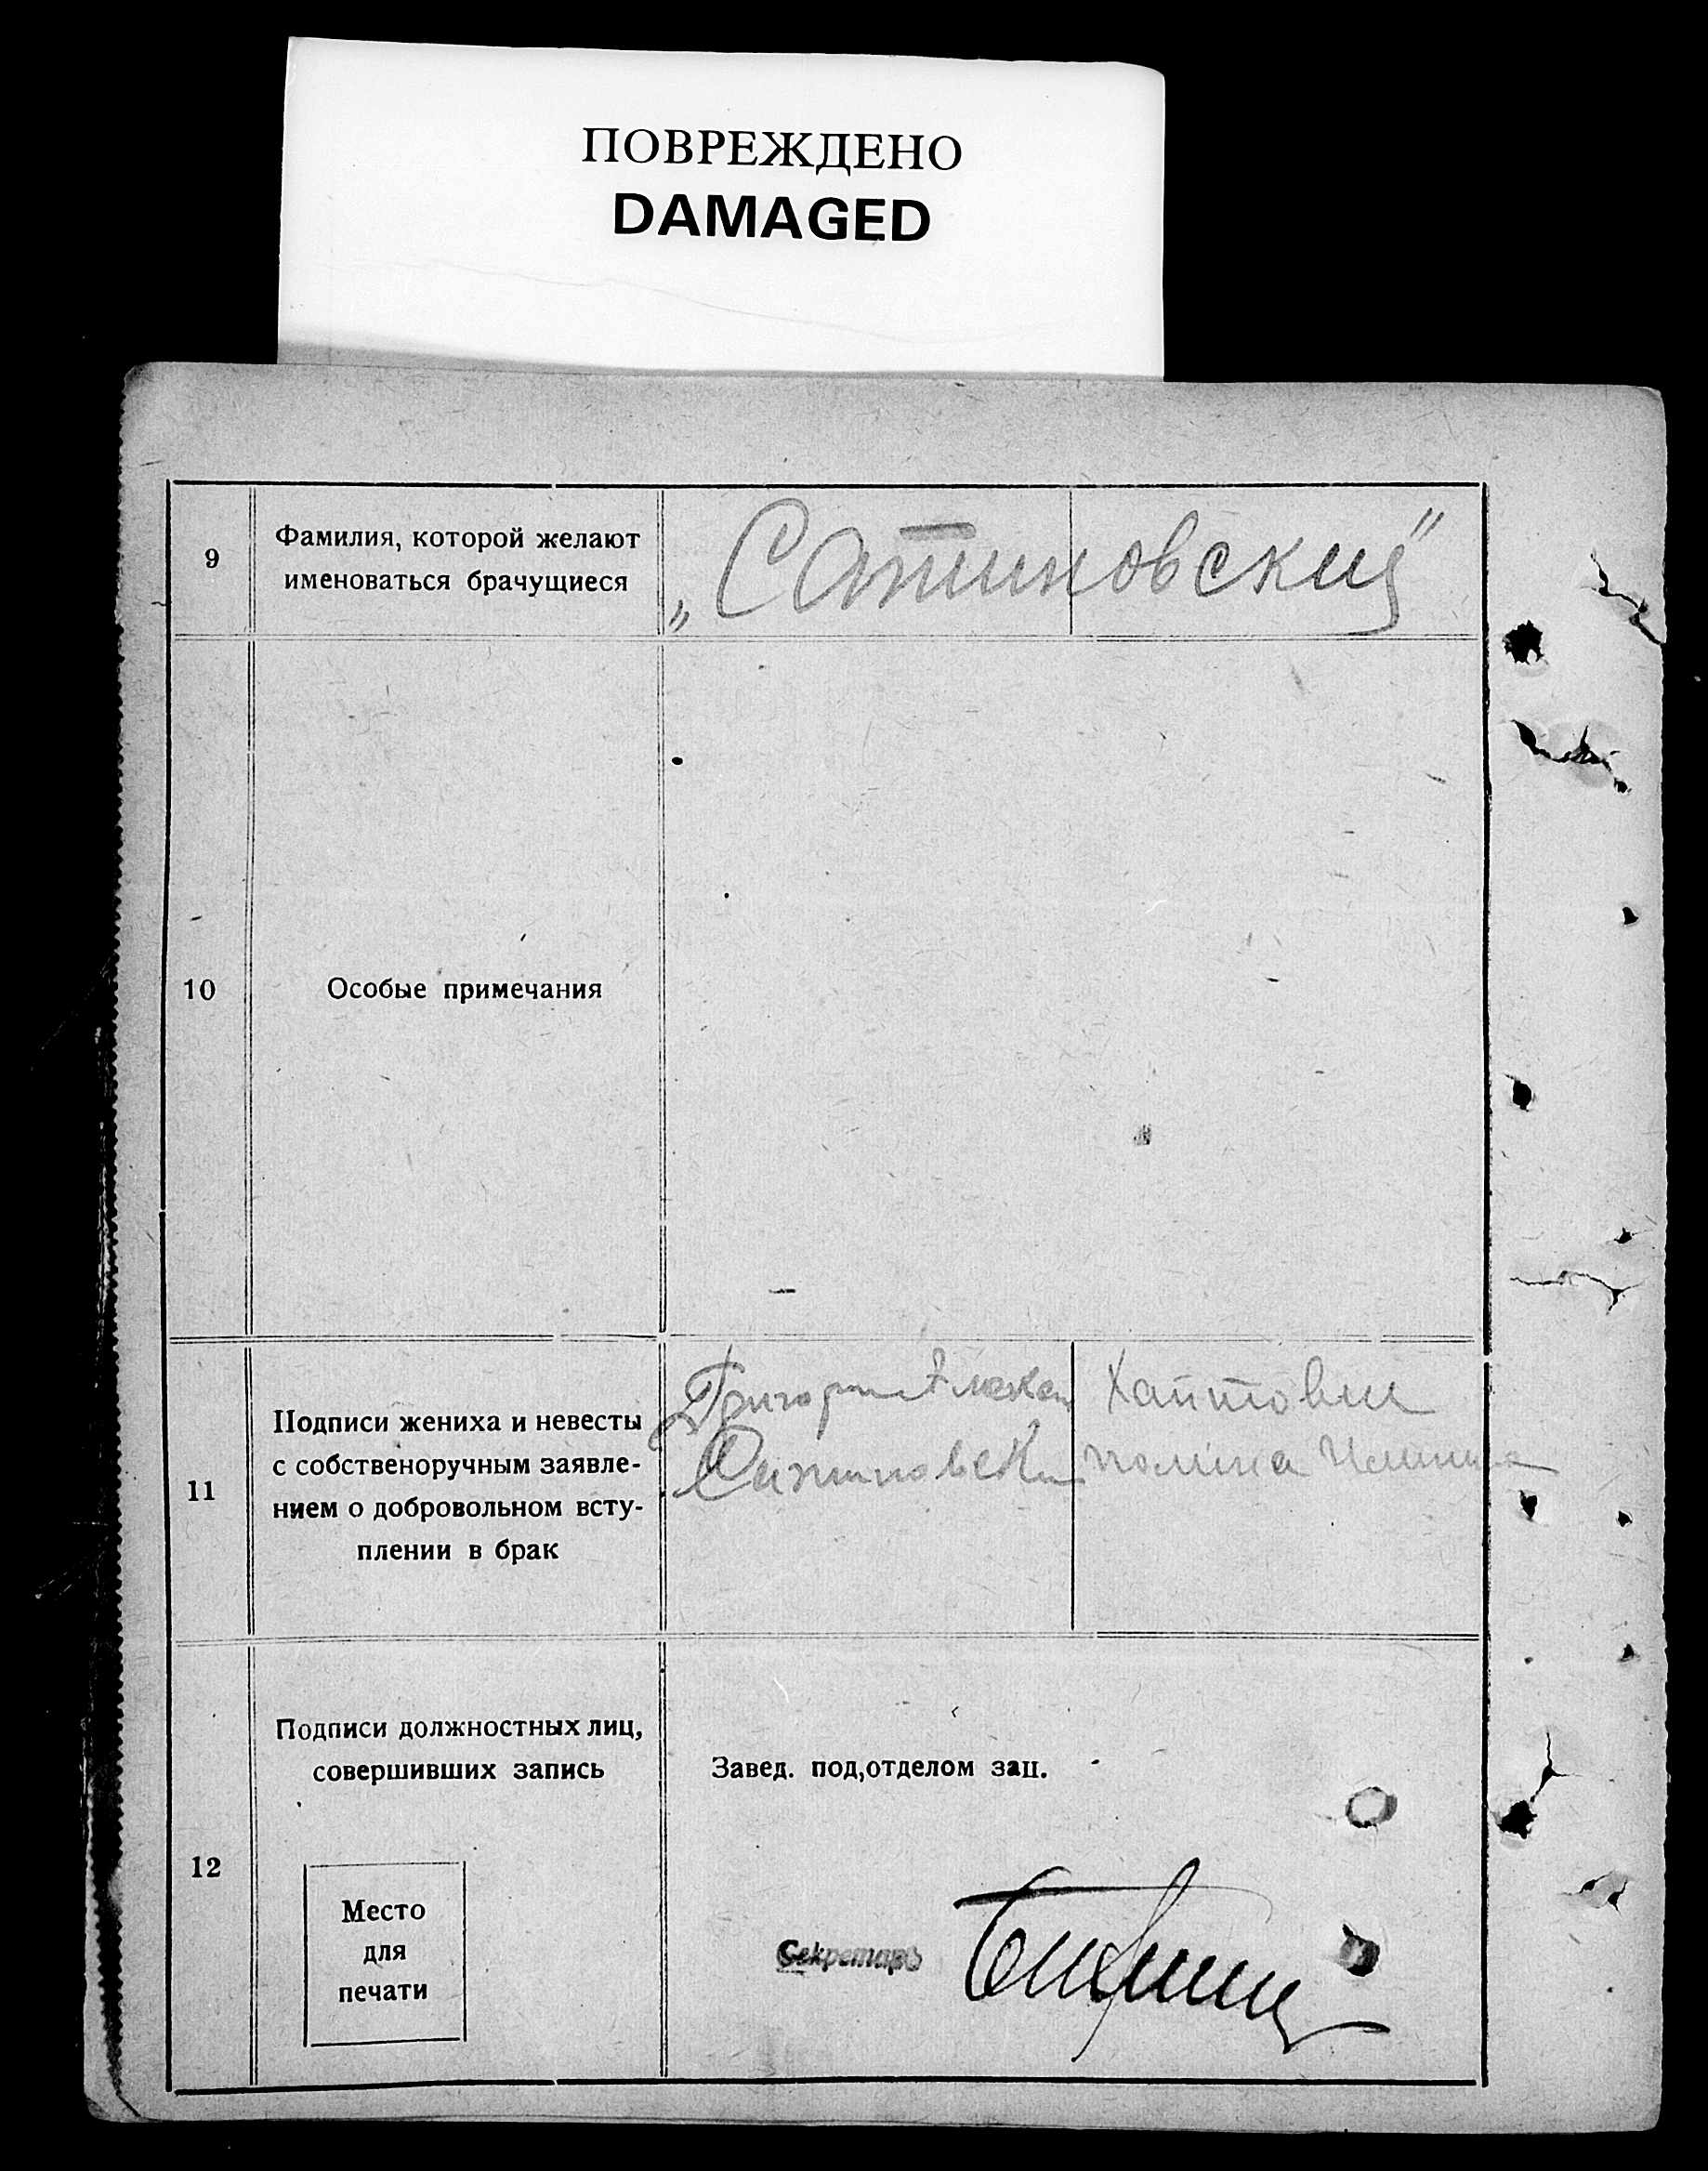 ПОВРЕЖДЕНО
DAMAGED
9
Фамилия, которой желают
именоваться брачущиеся
„Сатиновский“
10
Особые примечания
11
Подписи жениха и невесты
с собственоручным заявле-
нием о добровольном всту-
плении в брак
Григори
Сатиновски
полина
12
Подписи должностных лиц,
совершивших запись
Завед. под,отделом зап.
Секретарь
Место
для
печати